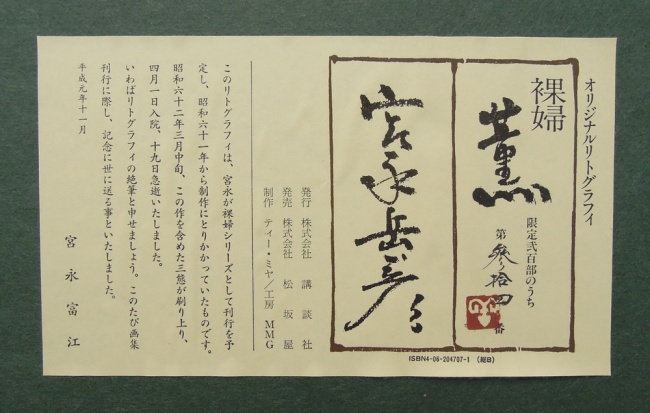 オリジナルリトグラフィ
裸婦
薫
限定弐百部のうち
第 参拾四 番
宮永岳彦
ISBN4-06-204707-1 (総B)
発行 株式会社 講談社
発売 株式会社 松坂屋
制作 ティー・ミヤ/工房 MMG
このリトグラフィは、宮永が裸婦シリーズとして刊行を予
定し、昭和六十一年から制作にとりかかっていたものです。
昭和六十二年三月中旬、この作を含めた三態が刷り上り、
四月一日入院、十九日急逝いたしました。
いわばリトグラフィの絶筆と申せましょう。このたび画集
刊行に際し、記念に世に送る事といたしました。
平成元年十一月
宮永富江